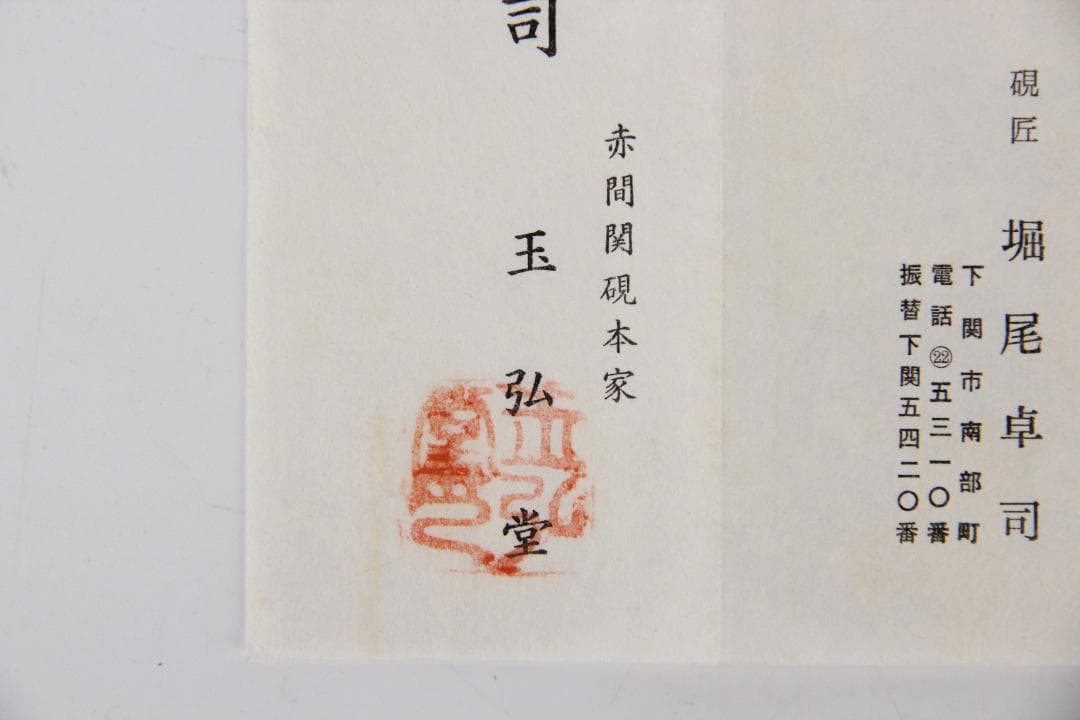 硯匠 堀尾卓司
下関市南部町
電話㉒五三一〇番
振替下関五四二〇番
赤間関硯本家
司 玉弘堂
玉弘堂印